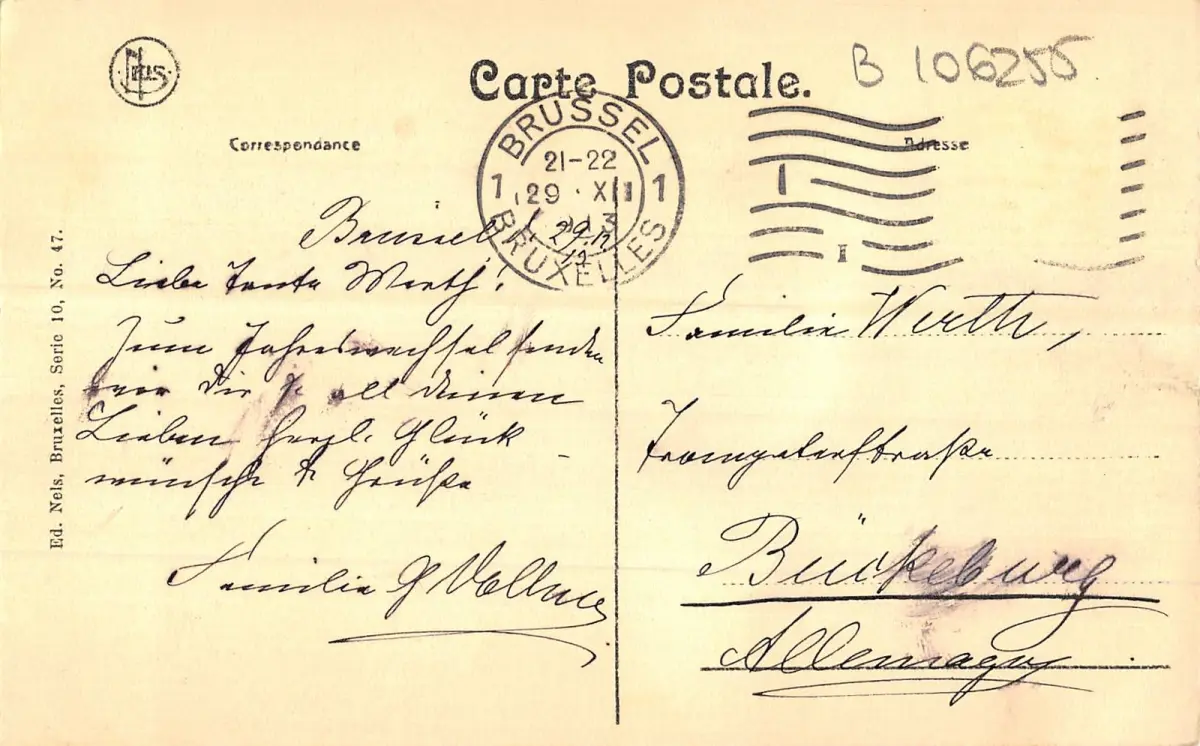 Nels
Carte Postale.
B 106255
Correspondance
Adresse
BRUSSEL
21-22
1 29 · XII 1
BRUXELLES
Brüssel, 29.12
Liebe Tante Werth!
Zum Jahreswechsel senden
wir Dir & all deinen
Lieben herzl. Glück
wünsche & Grüße
Familie G
Familie Werth,
Trompeterstraße
Bückeburg
Allemagne
Ed. Nels, Bruxelles, Serie 10, No. 47.